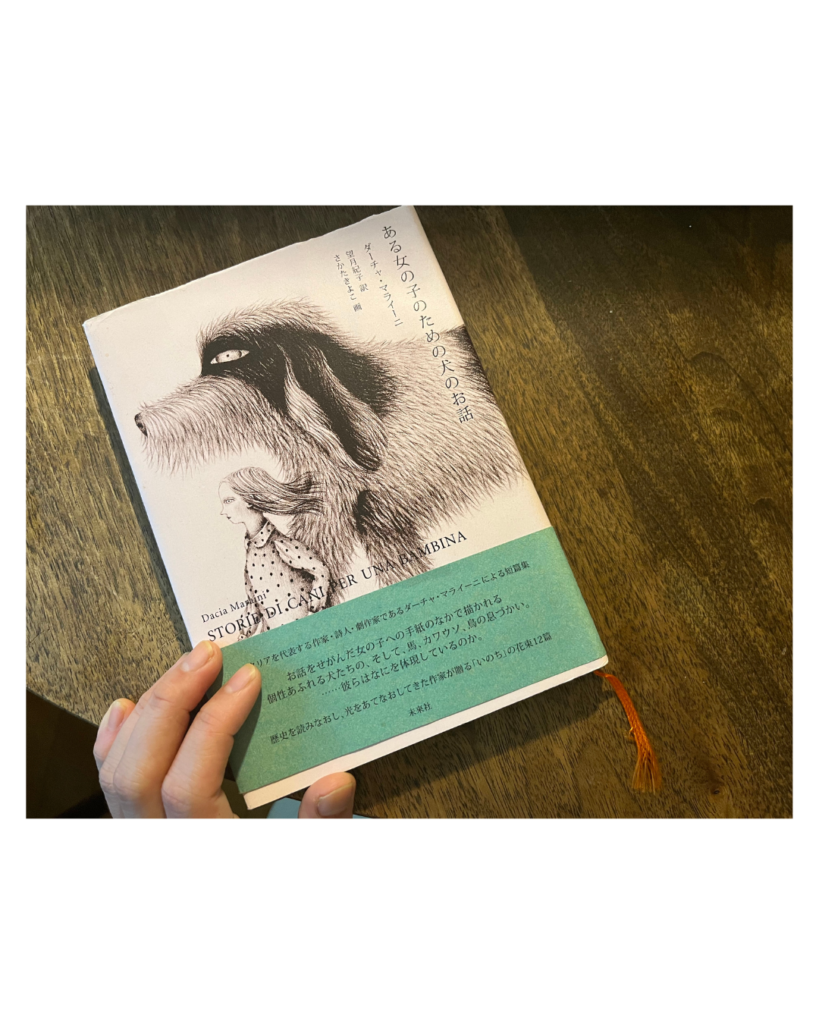 ある女の子のための犬のお話
ダーチャ・マライーニ
望月紀子 訳
さかたきよこ 画
Dacia Maraini
STORIE DI CANI PER UNA BAMBINA
リアを代表する作家・詩人・劇作家であるダーチャ・マライーニによる短篇集
お話をせがんだ女の子への手紙のなかで描かれる
個性あふれる犬たちの、そして、馬、カワウソ、鳥の息づかい。
……彼らはなにを体現しているのか。
歴史を読みなおし、光をあてなおしてきた作家が贈る「いのち」の花束12篇
未來社